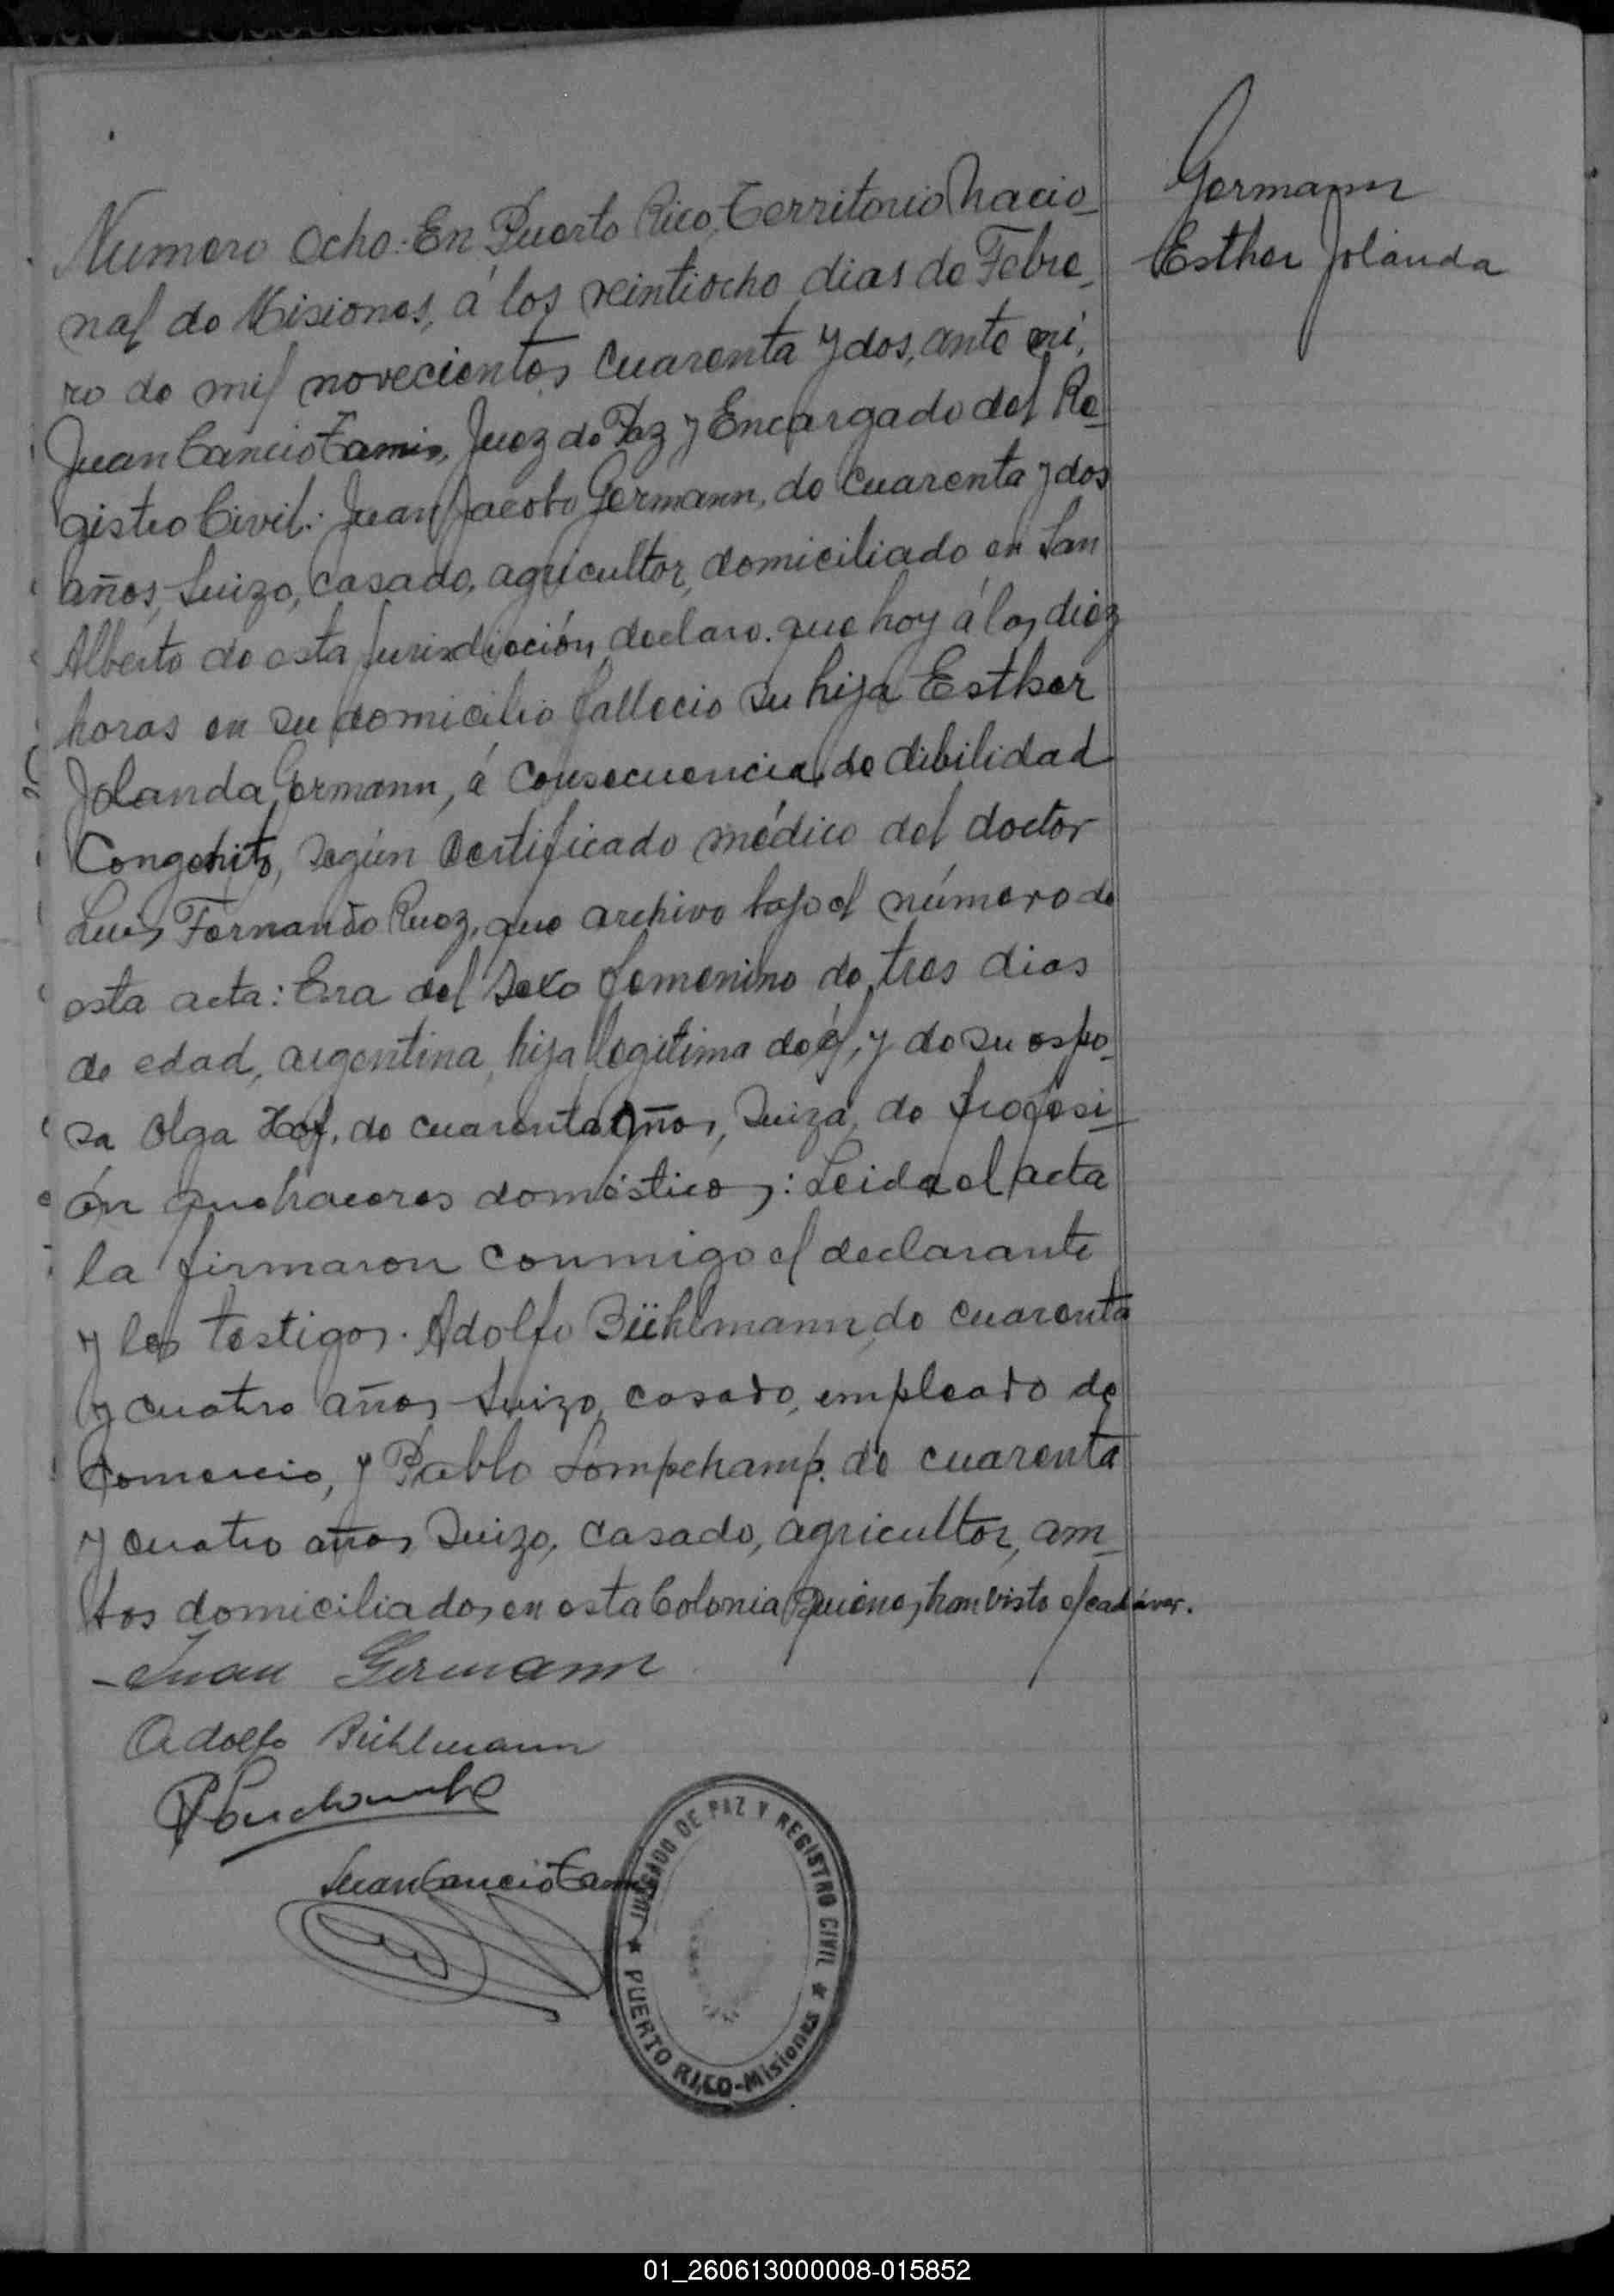 Germann
Esther Jolanda
Numero Ocho: En Puerto Rico, Territorio Nacio-
nal de Misiones, á los veintiocho dias de Febre-
ro de mil novecientos cuarenta y dos, ante mi,
Juan Cancio Tamis, Juez de Paz y Encargado del Re-
gistro Civil: Juan Jacobo Germann, de cuarenta y dos
años, Suizo, casado, agricultor, domiciliado en San
Alberto de esta jurisdicción, declaro que hoy á las diez
horas en su domicilio fallecio su hija Esther
Jolanda Germann, á consecuencia de dibilidad
Congenito, según certificado médico del doctor
Luis Fernando Ruez, que archivo bajo el número de
esta acta: Era del sexo femenino de tres dias
de edad, argentina, hija legitima de él, y de su espo-
sa Olga Hof, de cuarenta años, Suiza, de profesi-
ón quehaceres domésticos: Leida el acta
la firmaron conmigo el declarante
y los testigos. Adolfo Bühlmann, de cuarenta
y cuatro años Suizo, casado, empleado de
Comercio, y Pablo Lompchamp. de cuarenta
y cuatro años, Suizo, casado, agricultor, am-
bos domiciliados en esta Colonia Quienes han visto el cadáver.
Juan Germann
Adolfo Bühlmann
Juan Cancio Tamis
JUZGADO DE PAZ Y REGISTRO CIVIL
★ PUERTO RICO-Misiones ★
01_260613000008-015852